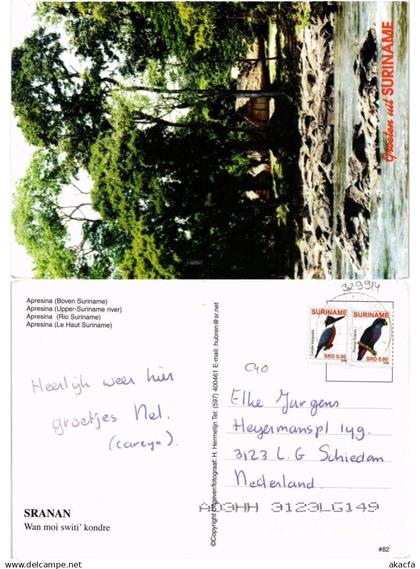 Groeten uit SURINAME
Apresina (Boven Suriname)
Apresina (Upper-Suriname river)
Apresina (Rio Suriname)
Apresina (Le Haut Suriname)
Heerlijk weer hier
groetjes Nel.
(Careyn).
SRANAN
Wan moi switi' kondre
©Copyright uitgever/fotograaf: H. Hermelijn Tel: (597) 400461 E-mail: hubren@sr.net
329914
SURINAME
SURINAME
C40
Elke Jurgens
Heyermanspl 149.
3123 L.G Schiedam
Nederland.
3123LG149
#82
www.delcampe.net
akacfa